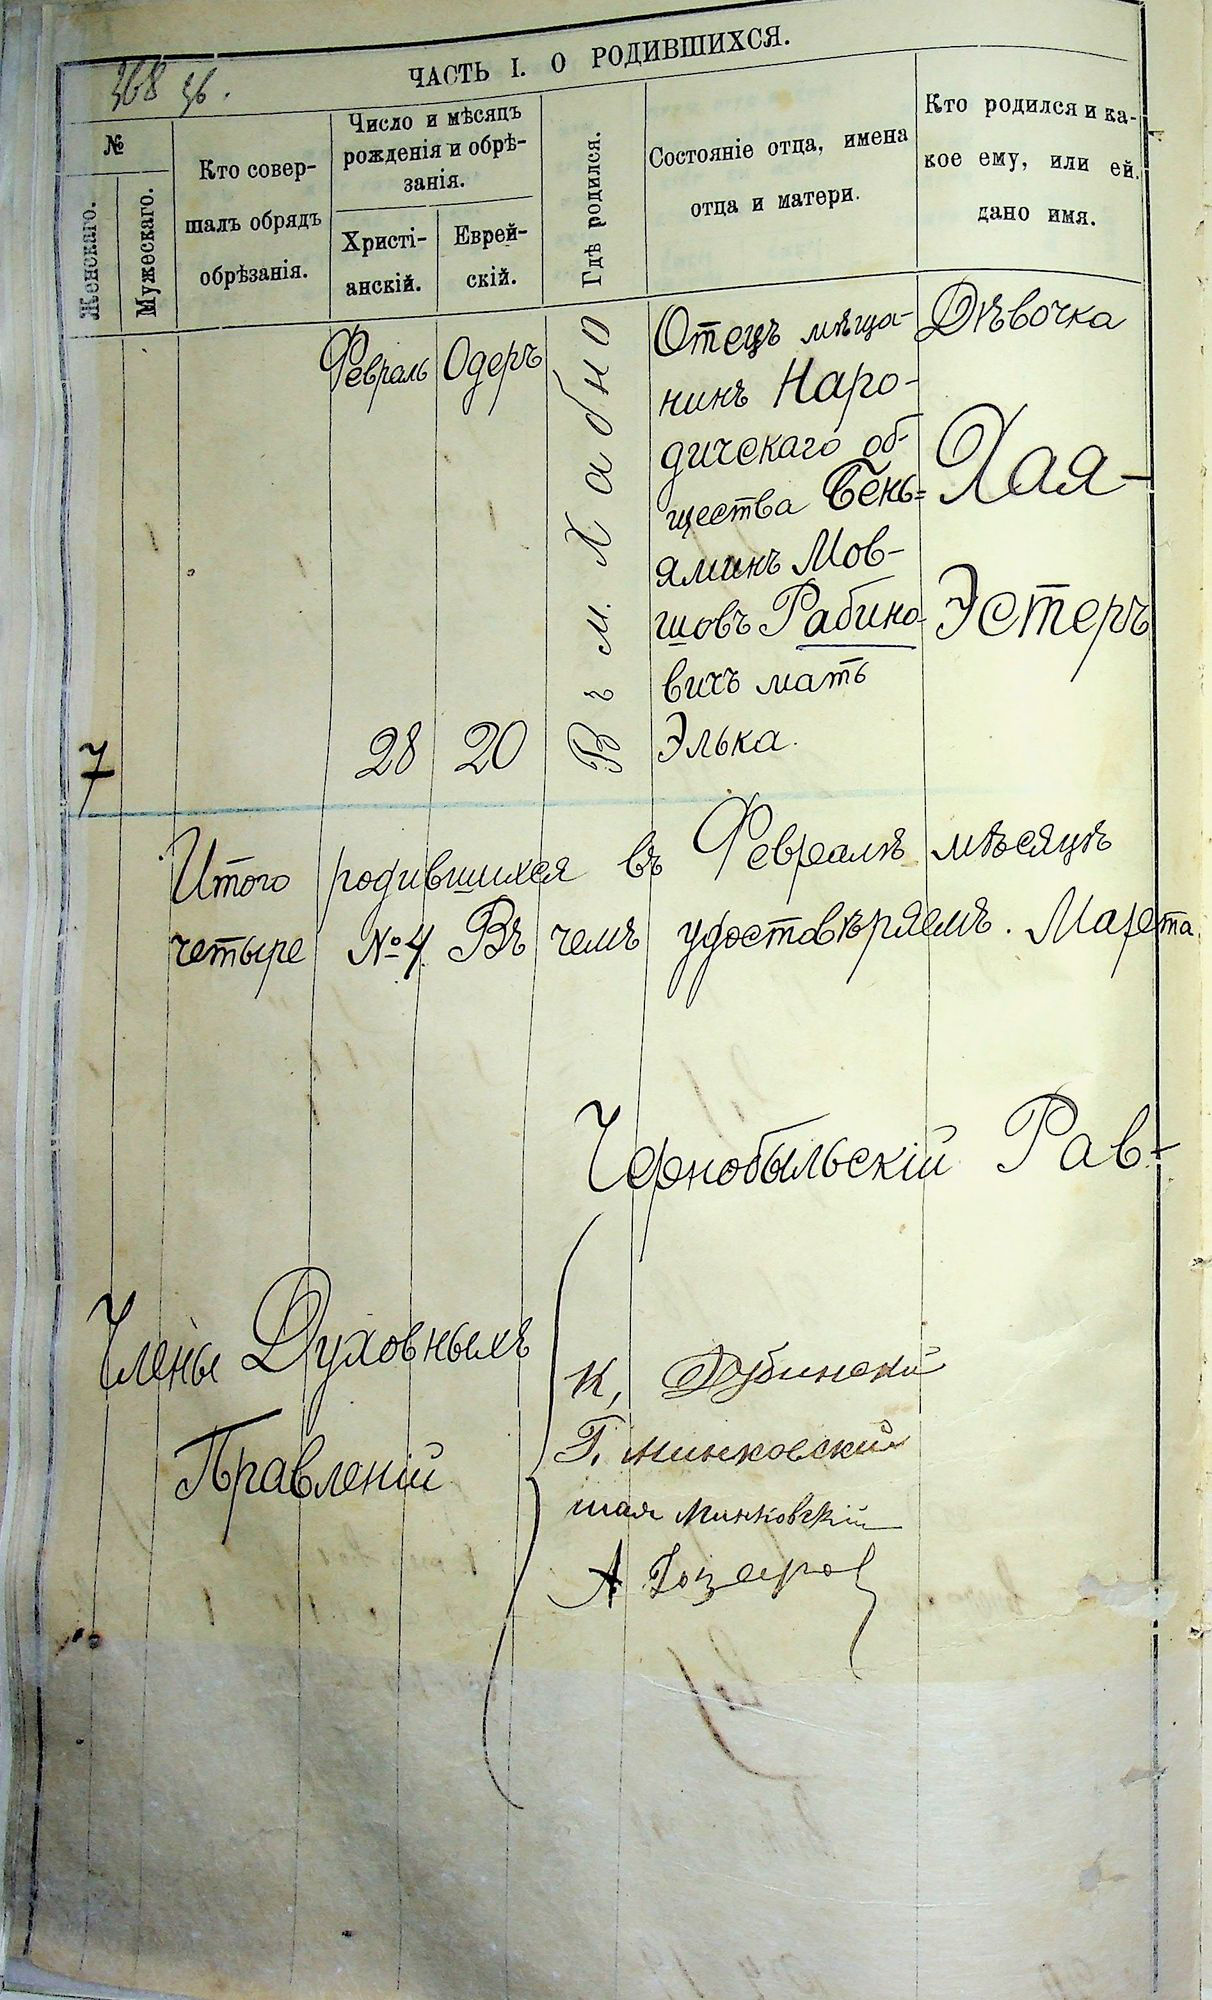 368
ЧАСТЬ I. О РОДИВШИХСЯ.
№
Женскаго.
Мужескаго.
Кто совер-
шалъ обрядъ
обрѣзанія.
Число и мѣсяцъ
рожденія и обрѣ-
занія.
Христі-
анскій.
Еврей-
скій.
Гдѣ родился.
Состояніе отца, имена
отца и матери.
Кто родился и ка-
кое ему, или ей.
дано имя.
7
Февраль
28
Одеръ
20
Въ м. Хабно
Отецъ мѣща-
нинъ Наро-
дичскаго об-
щества Бень=
яминъ Мов-
шовъ Рабино-
вичъ мать
Элька.
Дѣвочка
Хая-
Эстеръ
Итого родившихся въ Февралѣ мѣсяцѣ
четыре №4. Въ чемъ удостовѣряемъ. Марта
Чернобыльскій Рав-
Члены Духовныхъ
Правленій
К, Дубинский
Г. Минковский
Шая Минковскій
А